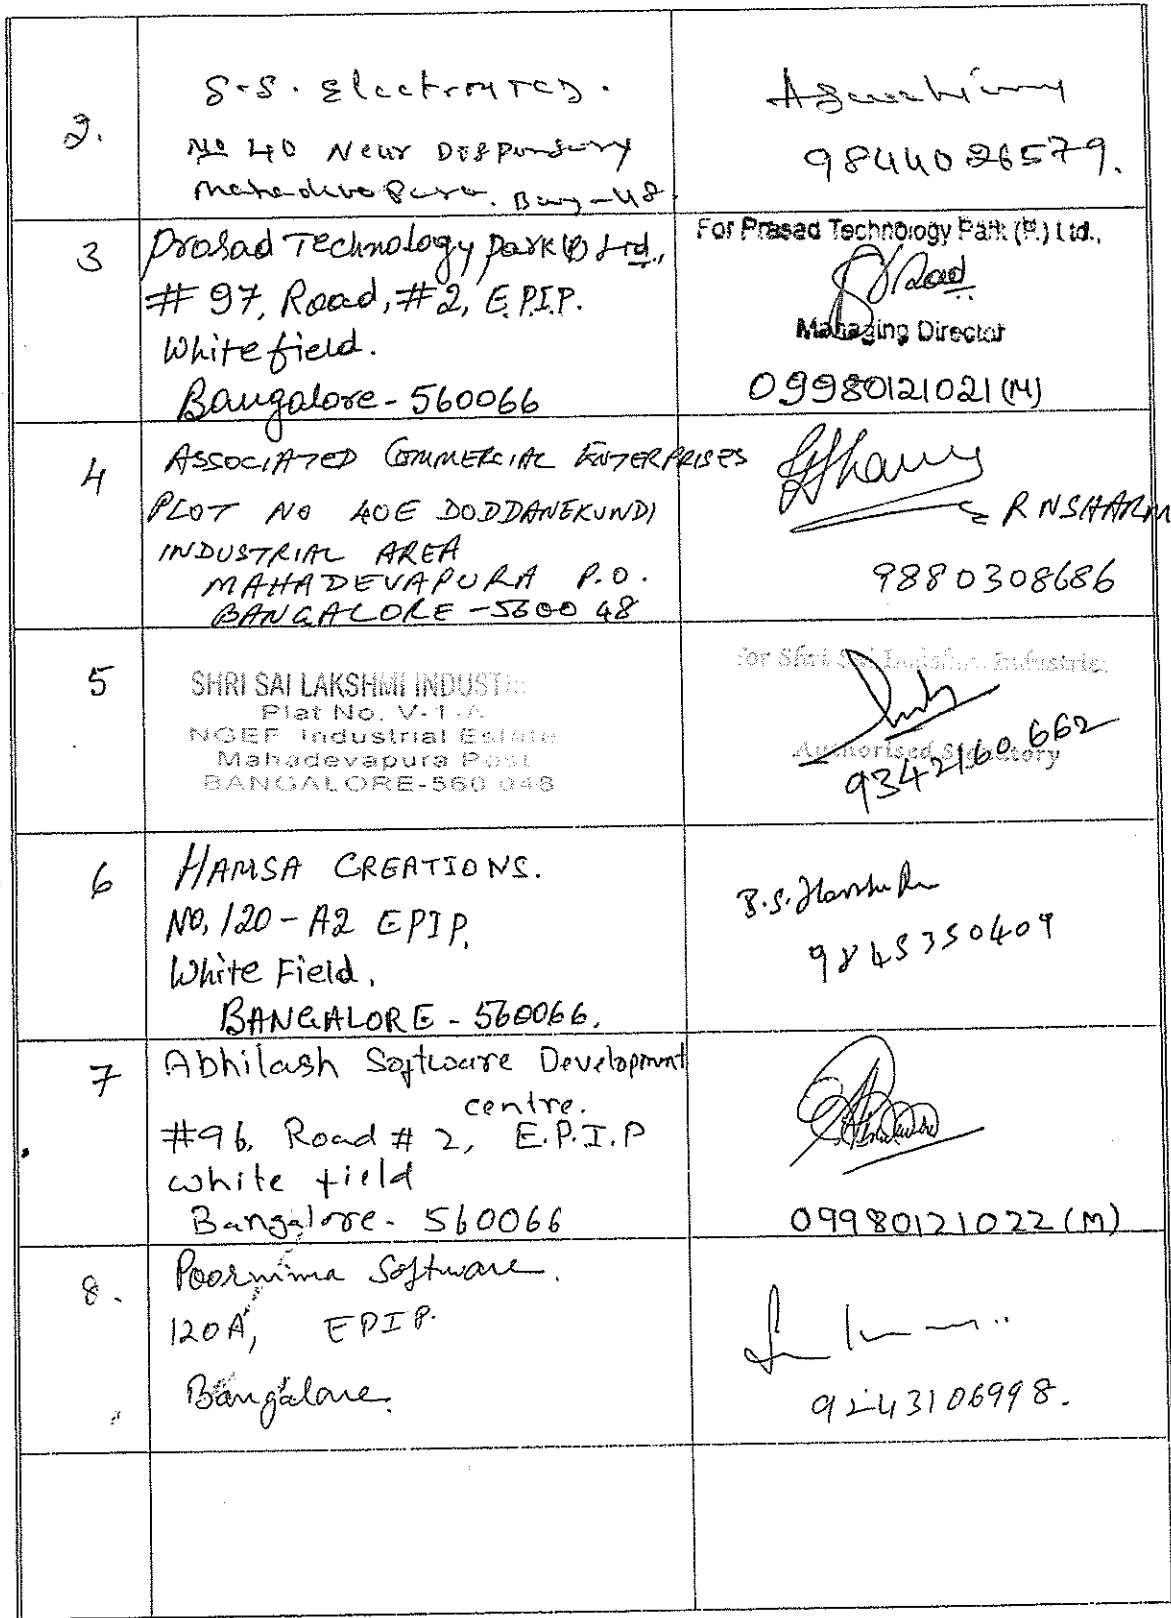 2.
S.S. Electronics.
No 40 Near Dispensary
Mahadevapura. Bang-48.
9844026579.
3
Prasad Technology Park (P) Ltd.,
# 97, Road, #2, E.P.I.P.
Whitefield.
Bangalore - 560066
For Prasad Technology Park (P.) Ltd.,
Managing Director
09980121021 (M)
4
ASSOCIATED COMMERCIAL ENTERPRISES
PLOT NO 40E DODDANEKUNDI
INDUSTRIAL AREA
MAHADEVAPURA P.O.
BANGALORE - 560048
R N SHARM
9880308686
5
SHRI SAI LAKSHMI INDUST
Plat No. V-1-A
NGEF Industrial Estate
Mahadevapura Post
BANGALORE-560 048
for Shri Sai Lakshmi Industries
Authorised Signatory
9342160662
6
HAMSA CREATIONS.
NO, 120 - A2 EPIP.
White Field.
BANGALORE - 560066.
B.S.
9845350409
7
Abhilash Software Development
centre.
#96, Road # 2, E.P.I.P
white field
Bangalore - 560066
09980121022 (M)
8.
Poornima Software.
120A, EPIP.
Bangalore.
9243106998.